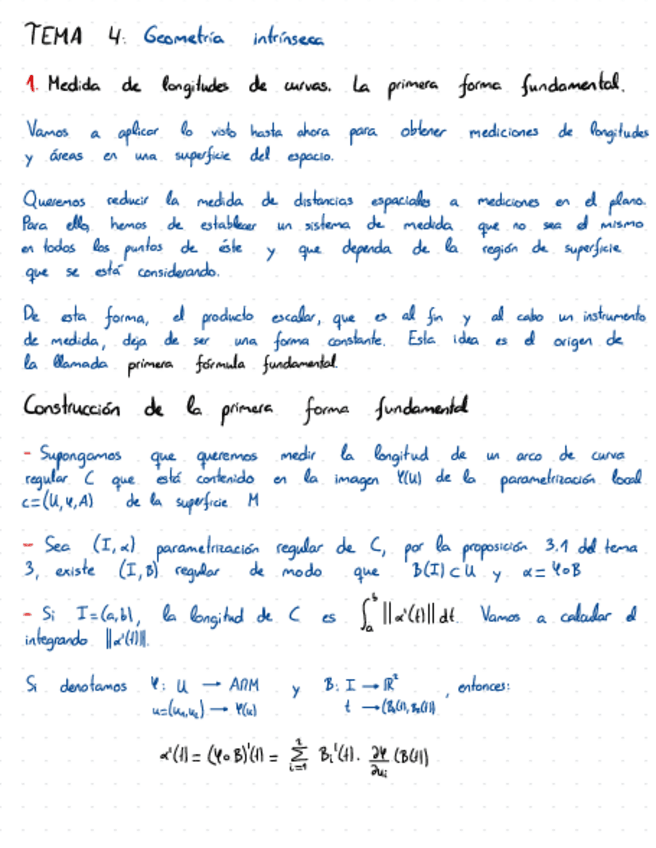 TEMA 4: Geometría intrínseca
1. Medida de longitudes de curvas. La primera forma fundamental.
Vamos a aplicar lo visto hasta ahora para obtener mediciones de longitudes
y áreas en una superficie del espacio.
Queremos reducir la medida de distancias espaciales a mediciones en el plano.
Para ello, hemos de establecer un sistema de medida que no sea el mismo
en todos los puntos de éste y que dependa de la región de superficie
que se está considerando.
De esta forma, el producto escalar, que es al fin y al cabo un instrumento
de medida, deja de ser una forma constante. Esta idea es el origen de
la llamada primera fórmula fundamental
Construcción de la primera forma fundamental
- Supongamos que queremos medir la longitud de un arco de curva
regular C que está contenido en la imagen φ(U) de la parametrización local
c=(U,φ,A) de la superficie M
- Sea (I,α) parametrización regular de C, por la proposición 3.1 del tema
3, existe (I,B) regular de modo que B(I)⊂U y α=φ∘B
- Si I=(a,b), la longitud de C es ∫ₐᵇ ||α'(t)|| dt. Vamos a calcular el
integrando ||α'(t)||.
Si denotamos φ: U → A∩M y B: I → ℝ² , entonces:
u=(u₁,u₂) → φ(u) t → (B₁(t),B₂(t))
α'(t) = (φ∘B)'(t) = Σᵢ₌₁² Bᵢ'(t) · ∂φ/∂uᵢ (B(t))